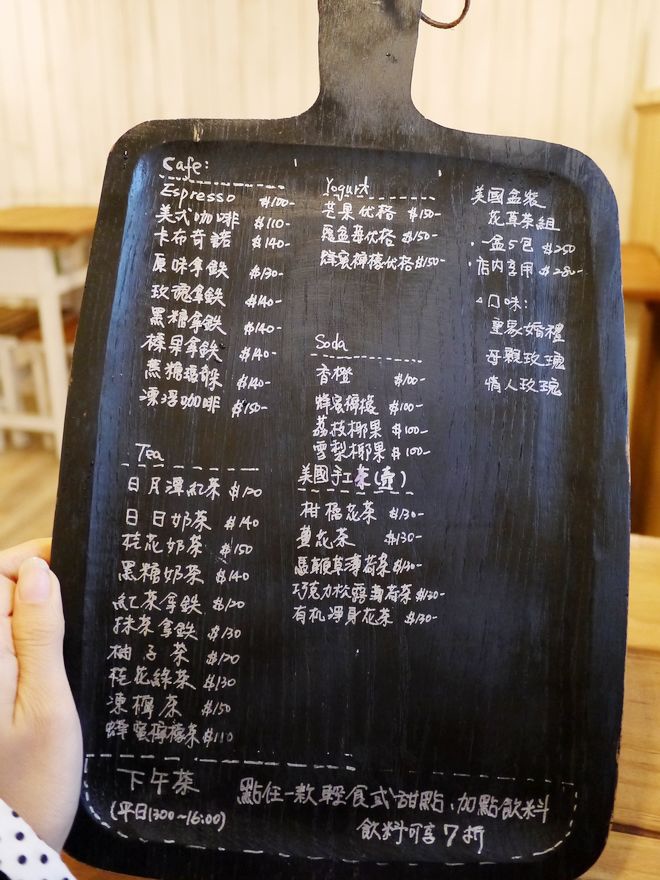 Cafe:
Espresso $100-
美式咖啡 $110-
卡布奇諾 $140-
原味拿鉄 $130-
玫瑰拿鉄 $140-
黑糖拿鉄 $140-
榛果拿鉄 $140-
焦糖瑪朵 $140-
漂浮咖啡 $150-
Tea
日月潭紅茶 $120
日日奶茶 $140
桂花奶茶 $150
黑糖奶茶 $140
紅茶拿鉄 $120
抹茶拿鉄 $130
柚子茶 $120
桂花綠茶 $130
凍檸茶 $150
蜂蜜檸檬茶 $110
Yogurt
芒果优格 $150-
覆盆莓优格 $150-
蜂蜜檸檬优格 $150-
Soda
香橙 $100-
蜂蜜檸檬 $100-
荔枝椰果 $100-
雪梨椰果 $100-
美國手工茶(壺)
柑橘花茶 $130-
薑花茶 $130-
馬鞭草薄荷茶 $130-
巧克力松露薄荷茶 $130-
有机淨身花茶 $130-
美國盒裝
花草茶組
·一盒5包 $250
·店内享用 $280-
口味:
皇家婚禮
母親玫瑰
情人玫瑰
下午茶
(平日1300~16:00)
點任一款輕食或甜點、加點飲料
飲料可享7折